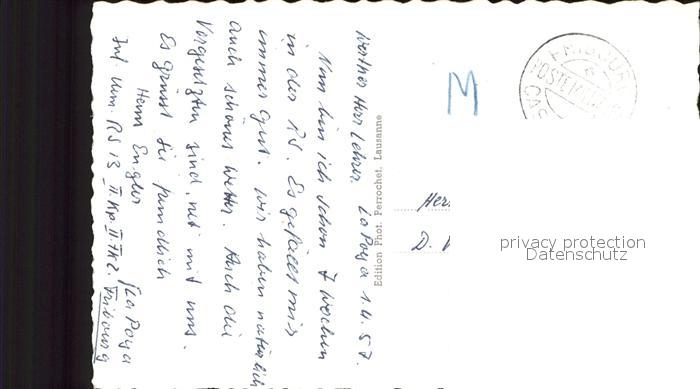 La Poya 1.4.57.
Werther Herr Lehrer.
Nun bin ich schon 7 Wochen
in der RS. Es gefällt mir
immer gut. Wir haben natürlich
auch schönes Wetter. Auch die
Vorgesetzten sind nett mit uns.
Es grüsst Sie freundlich
Hans Engler
Inf. Ukm. RS 13 II. Kp. II. Zk2. La Poya
Fribourg
Edition Phot. Perrochet, Lausanne
M
FRIBOURG
POSTE MIL
CAS
Her
D.
privacy protection
Datenschutz